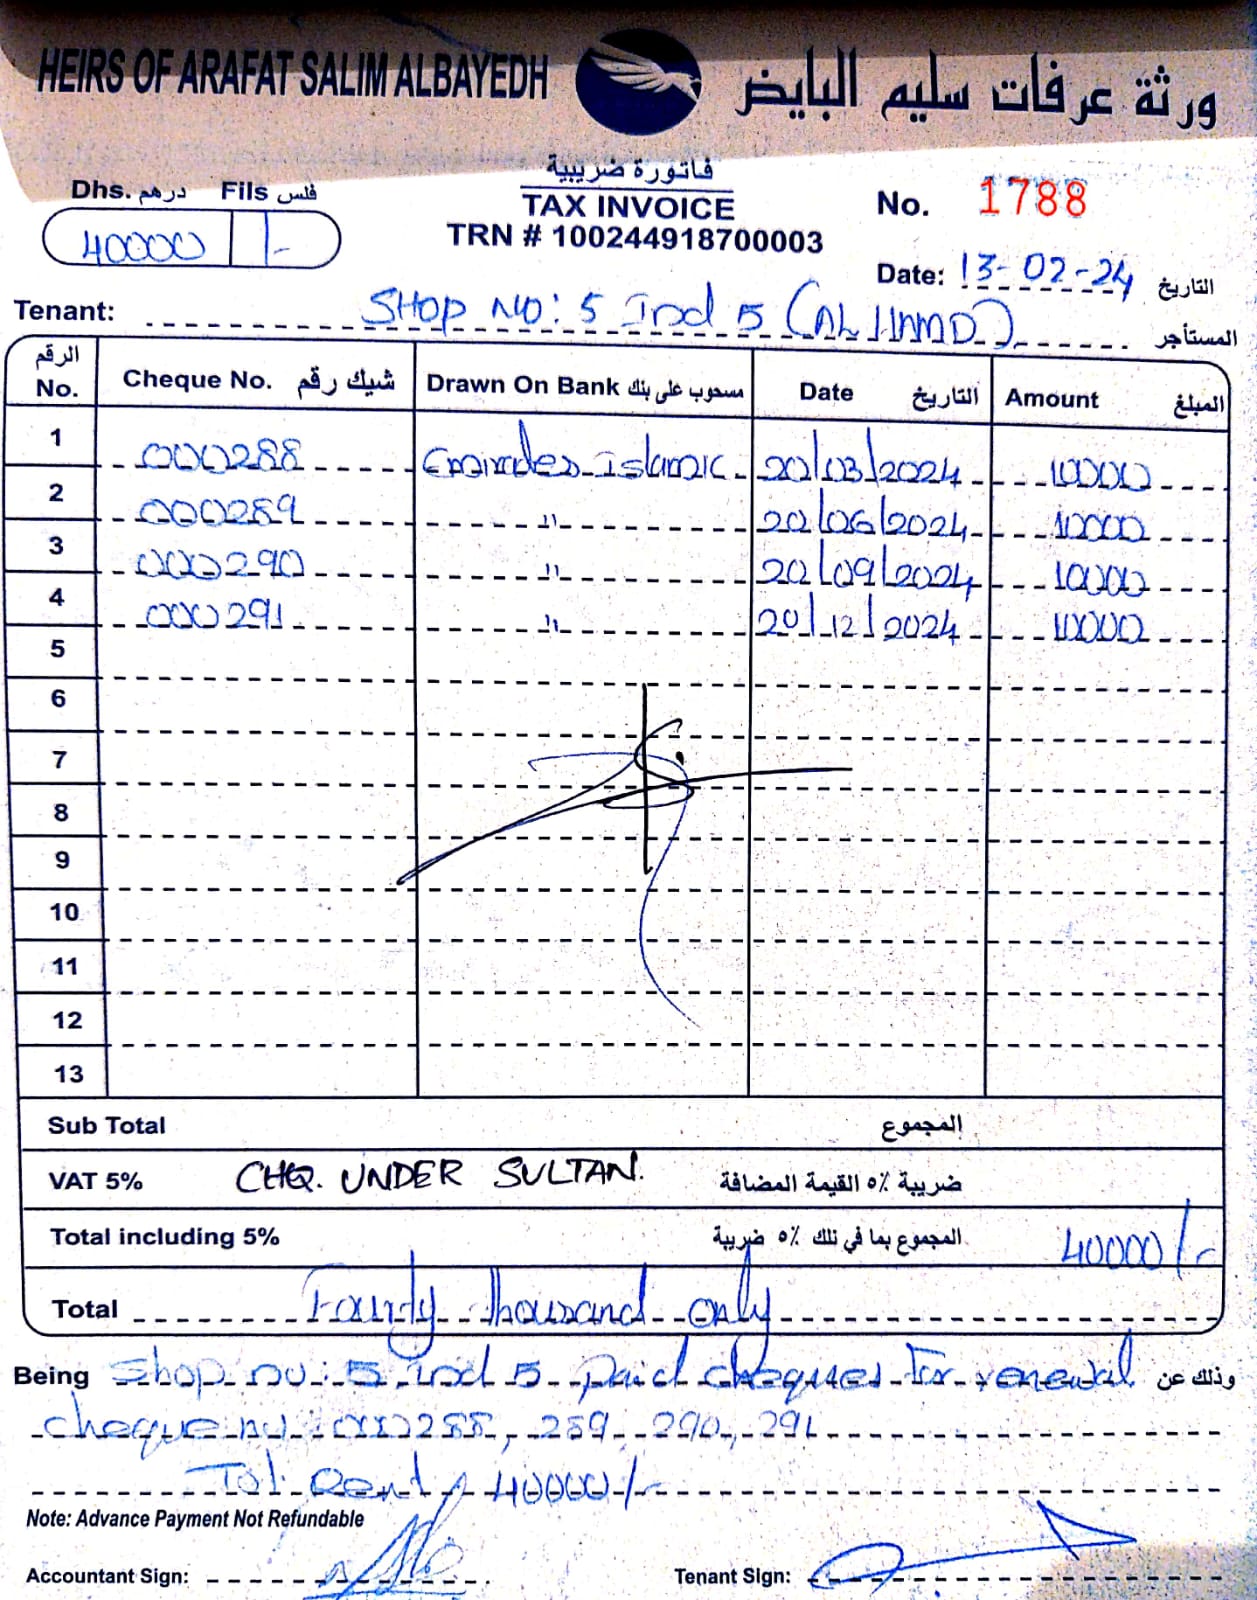 HEIRS OF ARAFAT SALIM ALBAYEDH ورثة عرفات سليم البايض
فاتورة ضريبية
TAX INVOICE
TRN # 100244918700003
Dhs. درهم Fils فلس
40000 /-
No. 1788
Date: 13-02-24 التاريخ
Tenant: SHOP NO: 5 Ind 5 (AL HAMD) المستأجر
الرقم No. Cheque No. شيك رقم Drawn On Bank مسحوب على بنك Date التاريخ Amount المبلغ
1 000288 Emirates Islamic 20/03/2024 10000
2 000289 " 20/06/2024 10000
3 000290 " 20/09/2024 10000
4 000291 " 20/12/2024 10000
5
6
7
8
9
10
11
12
13
Sub Total المجموع
VAT 5% CHQ. UNDER SULTAN. ضريبة ٥٪ القيمة المضافة
Total including 5% المجموع بما في تلك ٥٪ ضريبة 40000/-
Total Fourty thousand only
Being Shop no: 5 ind 5 paid cheques for renewal وذلك عن
cheque no: 000288, 289, 290, 291
Tot: Rent 40000/-
Note: Advance Payment Not Refundable
Accountant Sign: Tenant Sign: